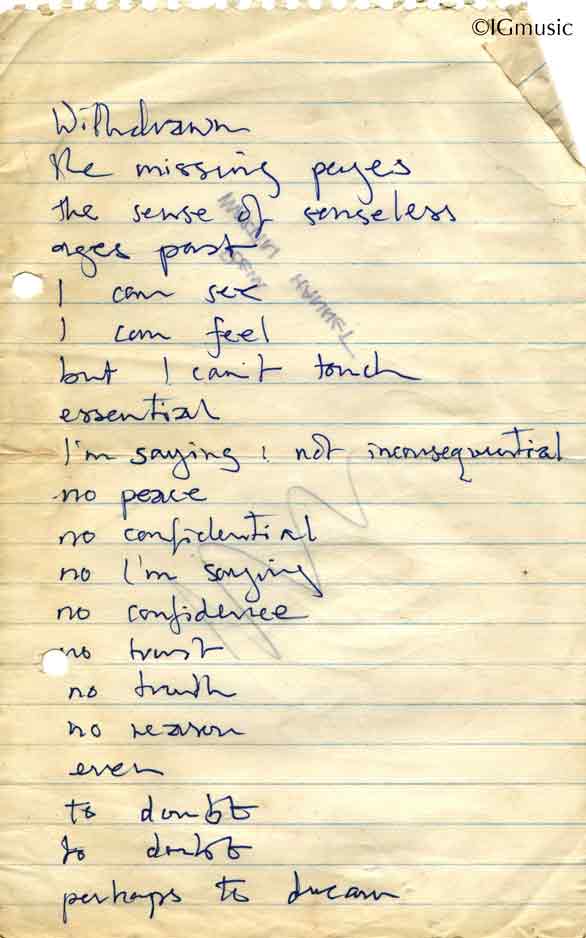 ©IGmusic
Withdrawn
the missing pages
the sense of senseless
ages past
I can see
I can feel
but I can't touch
essential
I'm saying : not inconsequential
no peace
no confidential
no I'm saying
no confidence
no trust
no truth
no reason
even
to doubt
to doubt
perhaps to dream